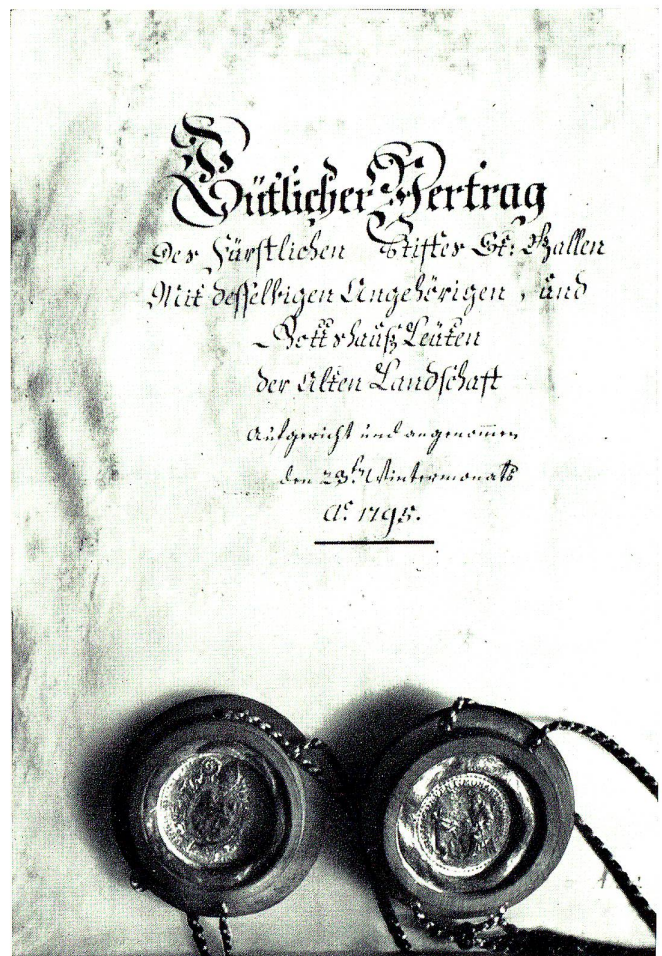 Gütlicher Vertrag
Des Fürstlichen Stiftes St: Gallen
Mit desselbigen Angehörigen, und
Gottshauß Leüten
der Alten Landschaft
Aufgericht und angenom̅en
den 23t. Wintermonats
Ao. 1795.